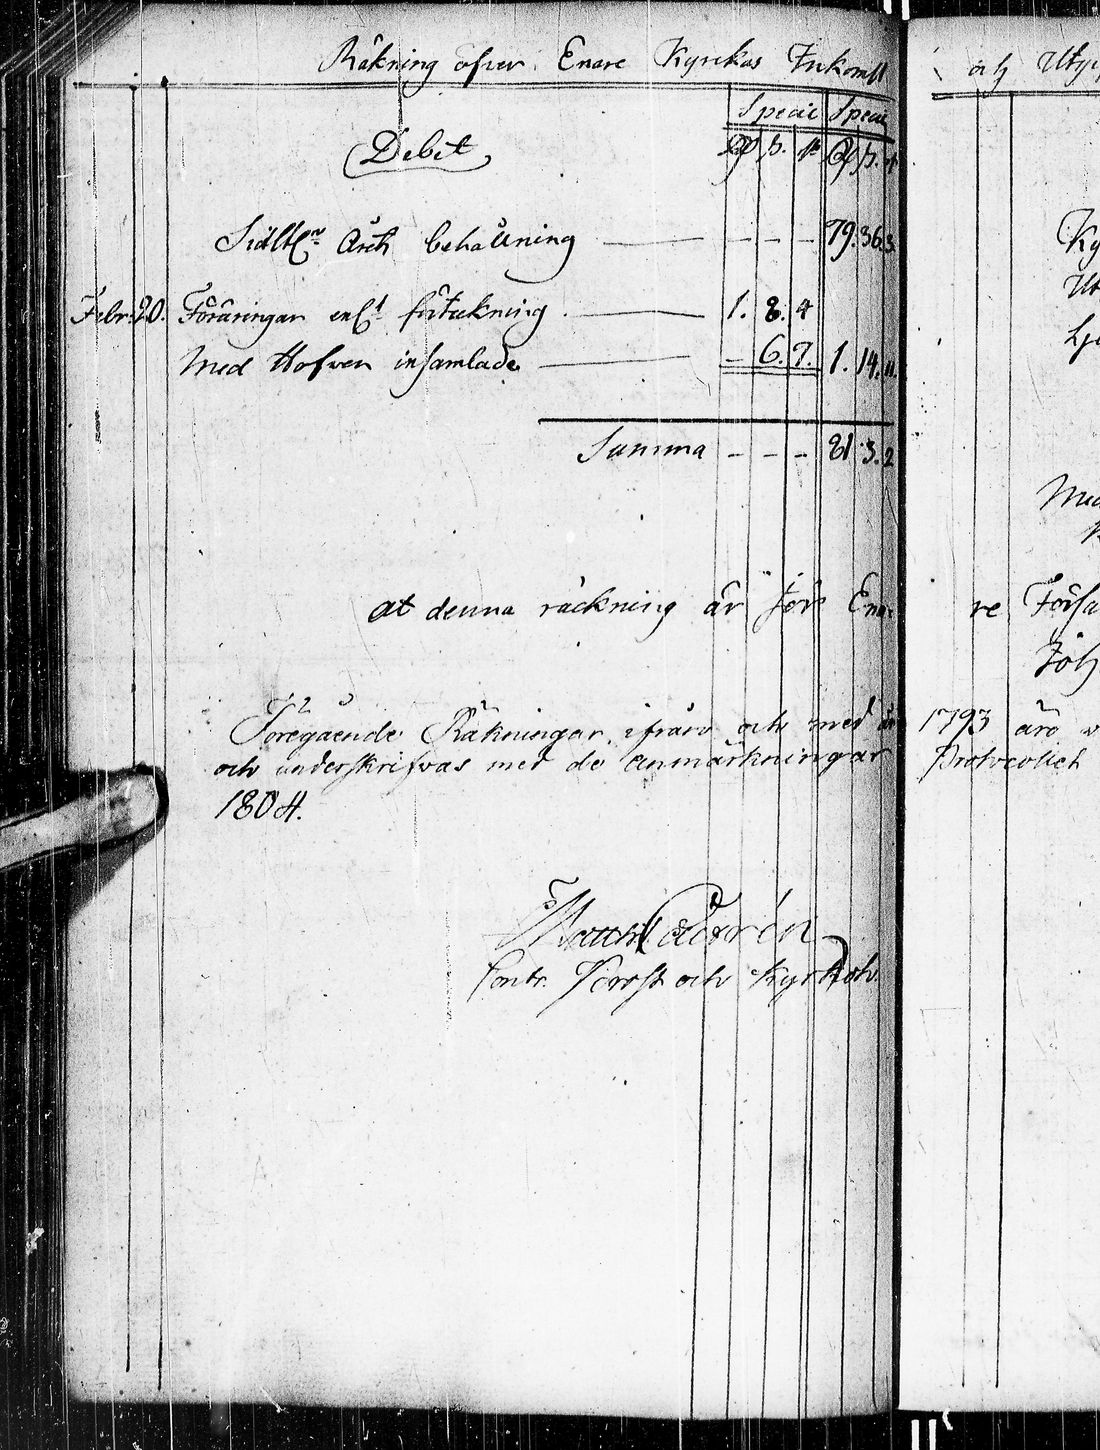 Räkning öfver Enare Kyrckas Inkomst
och Utgif
Specie Specie
Rdr ß. Rdr ß.
Debet
Sidstl. Årets behållning - - - 79. 36. 3.
Febr: 20. Föräringar enl. förtekning 1. 8. 4
Med Hofven insamlade - 6. 7. 1. 14. 11.
Summa - - - 81. 3. 2
at denna räckning är för Enare Försa
Joh
Föregående Räkningar, ifrån och med år 1793 äro
och underskrifvas med de anmärkningar
1804.
Contr. Prost och Kyrkoh.
Ky
Ut
Med